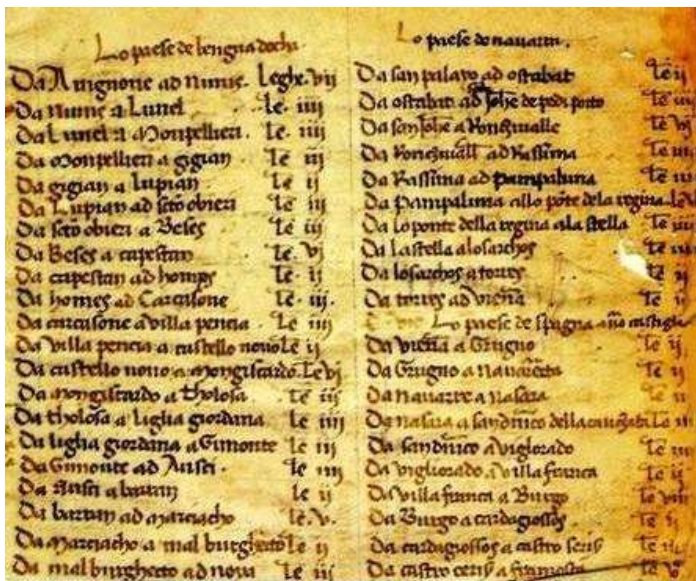 Lo paese de lengua dochi
Da Avignone ad nimis. Leghe. vii
Da nimis a Lunel le. iiii
Da Lunel a Monpellieri le. iiii
Da Monpellieri a gigian le iii
Da gigian a Lupian le ii
Da Lupian ad scto obieri le iii
Da scto obieri a Beses le iii
Da Beses a capestan le. vi
Da capestan ad homps le. ii
Da homes ad Carcasone le. iii.
Da carcasone a villa pencia. le iiii
Da villa pencia a castello novo le ii
Da castello novo a mongiscardo. le vi
Da mongiscardo a tholosa. le iii
Da tholosa a liglia giordana le iiii
Da liglia giordana a Gimonte le ii
Da Gimonte ad Ausci. le iiii
Da Ausci a barran le ii
Da barran ad marciacho le. v.
Da marciacho a mal burghetto le ii
Da mal burghetto ad le iii
Lo paese de navarra.
Da san palayo ad ostabat le ii
Da ostabat ad Johe de pedi porto le
Da san Johe a Roncisvalle le
Da ad Rassina le
Da Rassina ad Pampaluna le
Da Pampaluna allo pote dela regina. le
Da lo ponte della regina a la stella le
Da la stella a losarchos le
Da losarchos a torres le ii
Da torres ad le ii
Lo paese de spagna
Da a Grugno le ii
Da Grugno a le ii
Da a nasara le ii
Da nasara a della le
Da a viglorado le
Da vigliorado a villa franca le ii
Da villa franca a Burgo le
Da Burgo a cardagiossos le ii
Da cardagiossos a castro seris le
Da castro ceris a le v